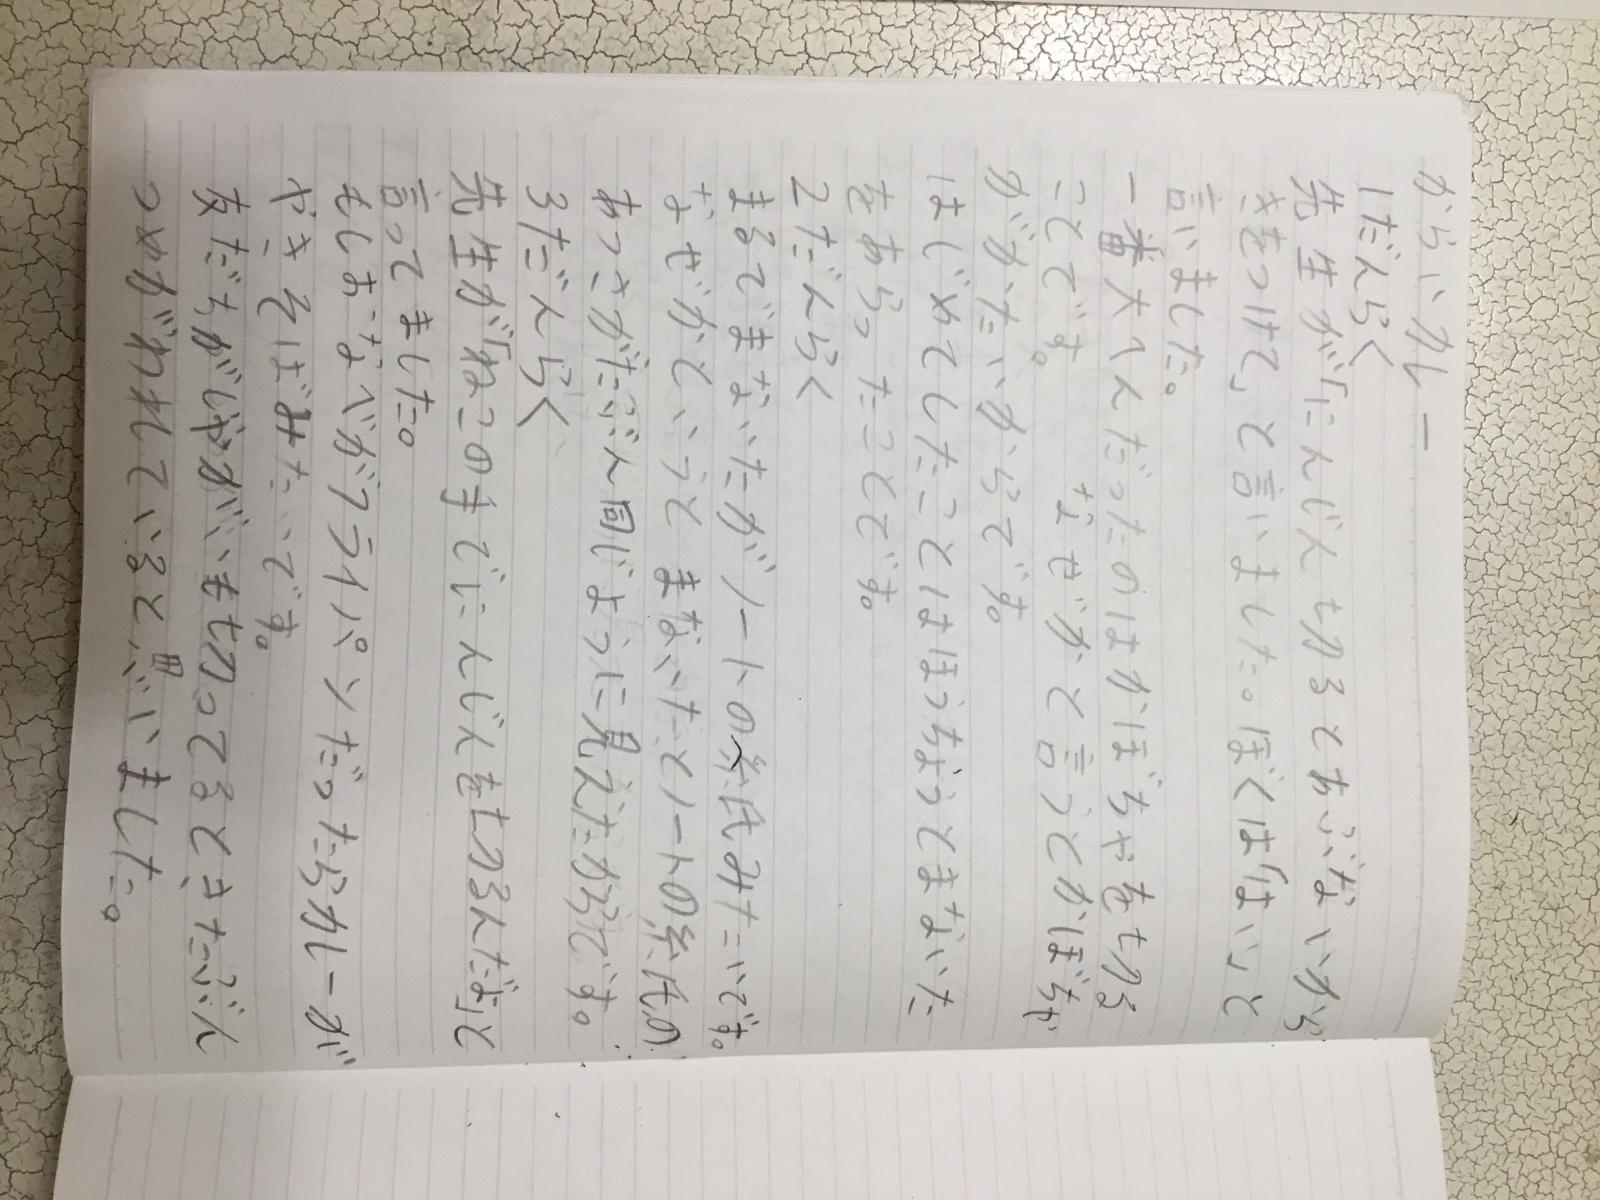 からいカレー
1だんらく
先生が「にんじんも切るとあぶないから
きをつけて」と言いました。ぼくは「はい」と
言いました。
一番大へんだったのはかぼちゃを切る
ことです。なぜかと言うとかぼちゃ
がかたいからです。
はじめてしたことはほうちょうとまないた
をあらったことです。
2だんらく
まるでまないたがノートの紙みたいです。
なぜかというとまないたとノートの紙の
あつさがたぶん同じように見えたからです。
3だんらく
先生が「ねこの手でにんじんを切るんだよ」と
言ってました。
もしおなべがフライパンだったらカレーが
やきそばみたいです。
友だちがじゃがいも切ってるときたぶん
つめがわれていると思いました。